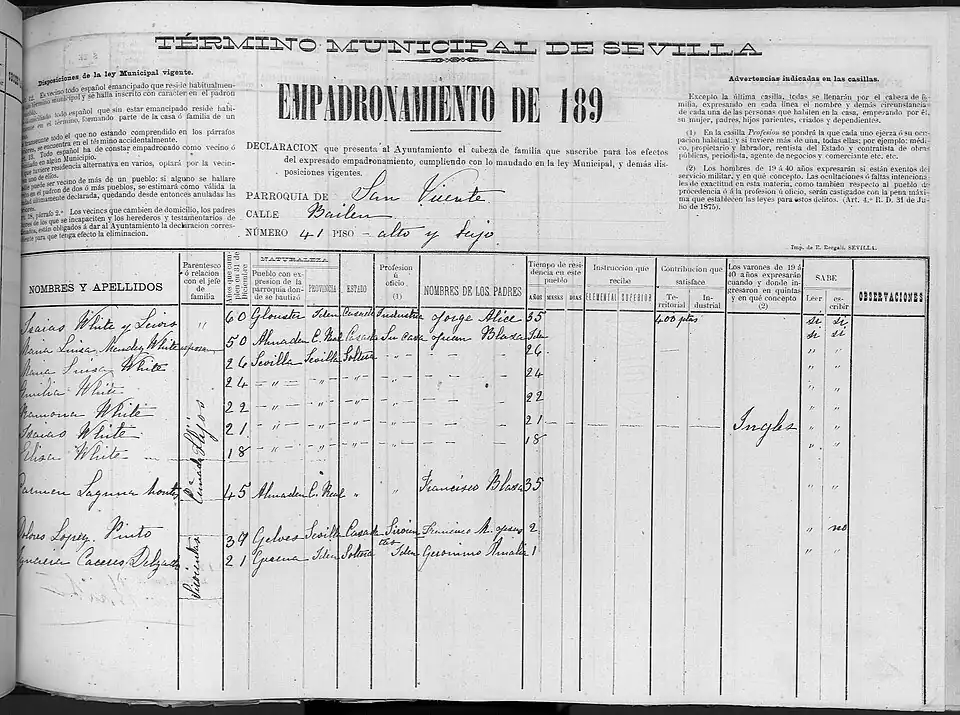 TÉRMINO MUNICIPAL DE SEVILLA
Disposiciones de la ley Municipal vigente.
Es vecino todo español emancipado que reside habitualmen-
término municipal y se halla inscrito con carácter en el padrón
todo español que sin estar emancipado reside habi-
en el término, formando parte de la casa ó familia de un
todo el que no estando comprendido en los párrafos
se encuentra en el término accidentalmente.
Todo español ha de constar empadronado como vecino ó
de algun Municipio.
que tuviere residencia alternativa en varios, optará por la vecin-
de uno de ellos.
puede ser vecino de más de un pueblo: si alguno se hallare
en el padron de dos ó más pueblos, se estimará como válida la
últimamente declarada, quedando desde entonces anuladas las
párrafo 2.º Los vecinos que cambien de domicilio, los padres
de los que se incapaciten y los herederos y testamentarios de
están obligados á dar al Ayuntamiento la declaracion corres-
para que tenga efecto la eliminacion.
EMPADRONAMIENTO DE 189
DECLARACION que presenta al Ayuntamiento el cabeza de familia que suscribe para los efectos
del expresado empadronamiento, cumpliendo con lo mandado en la ley Municipal, y demás dis-
posiciones vigentes.
PARROQUIA DE San Vicente
CALLE Bailen
NÚMERO 41 PISO alto y bajo
Advertencias indicadas en las casillas.
Excepto la última casilla, todas se llenarán por el cabeza de fa-
milia, expresando en cada línea el nombre y demás circunstancias
de cada una de las personas que habiten en la casa, empezando por él,
su mujer, padres, hijos parientes, criados y dependientes.
(1) En la casilla Profesion se pondrá la que cada uno ejerza ó su ocu-
pacion habitual; y si tuviere más de una, todas ellas; por ejemplo: médi-
co, propietario y labrador, rentista del Estado y contratista de obras
públicas, periodista, agente de negocios y comerciante etc. etc.
(2) Los hombres de 19 á 40 años expresarán si están exentos del
servicio militar, y en qué concepto. Las ocultaciones ó faltas intenciona-
les de exactitud en esta materia, como tambien respecto al pueblo de
procedencia ó á la profesion ú oficio, serán castigados con la pena máxi-
ma que establecen las leyes para estos delitos. (Art. 4.º R. D. 31 de Ju-
lio de 1875).
Imp. de E. Bergali, SEVILLA.
NOMBRES Y APELLIDOS
Parentesco ó relación con el jefe de familia
Años que cumplen en 31 de Diciembre
NATURALEZA
Pueblo con expresion de la parroquia donde se bautizó
PROVINCIA
ESTADO
Profesion ú oficio. (1)
NOMBRES DE LOS PADRES
Tiempo de residencia en este pueblo
AÑOS MESES DIAS
Instruccion que recibe
ELEMENTAL SUPERIOR
Contribucion que satisface
Territorial Industrial
Los varones de 19 á 40 años expresarán cuando y donde ingresaron en quintas y en qué concepto (2)
SABE
Leer escribir
OBSERVACIONES
Isaias White y 〃 60 Glouster Idem Casado Industria Jorge Alice 35 400 ptas si si
Maria Luisa Mendez White esposa 50 Almaden C. Real Casada Su casa Juan Blasa Idem si si
Maria Luisa White 26 Sevilla Sevilla Soltera 〃 26 〃 〃
Emilia White 24 〃 〃 24 〃 〃
Ramona White 22 〃 〃 22 〃 〃
Isaias White 21 〃 〃 21 Ingles 〃 〃
Elisa White 18 〃 〃 18 〃 〃
Hijos
Carmen Laguna 45 Almaden C. Real 〃 〃 Francisco Blasa 35 〃 〃
Cuñada
Dolores Lopez Pinto Casada Sirvientas 2 〃 no
Caceres Delgado 21 Gerena Idem Soltera Idem Geronimo Amalia 1 〃 〃
Sirvientas